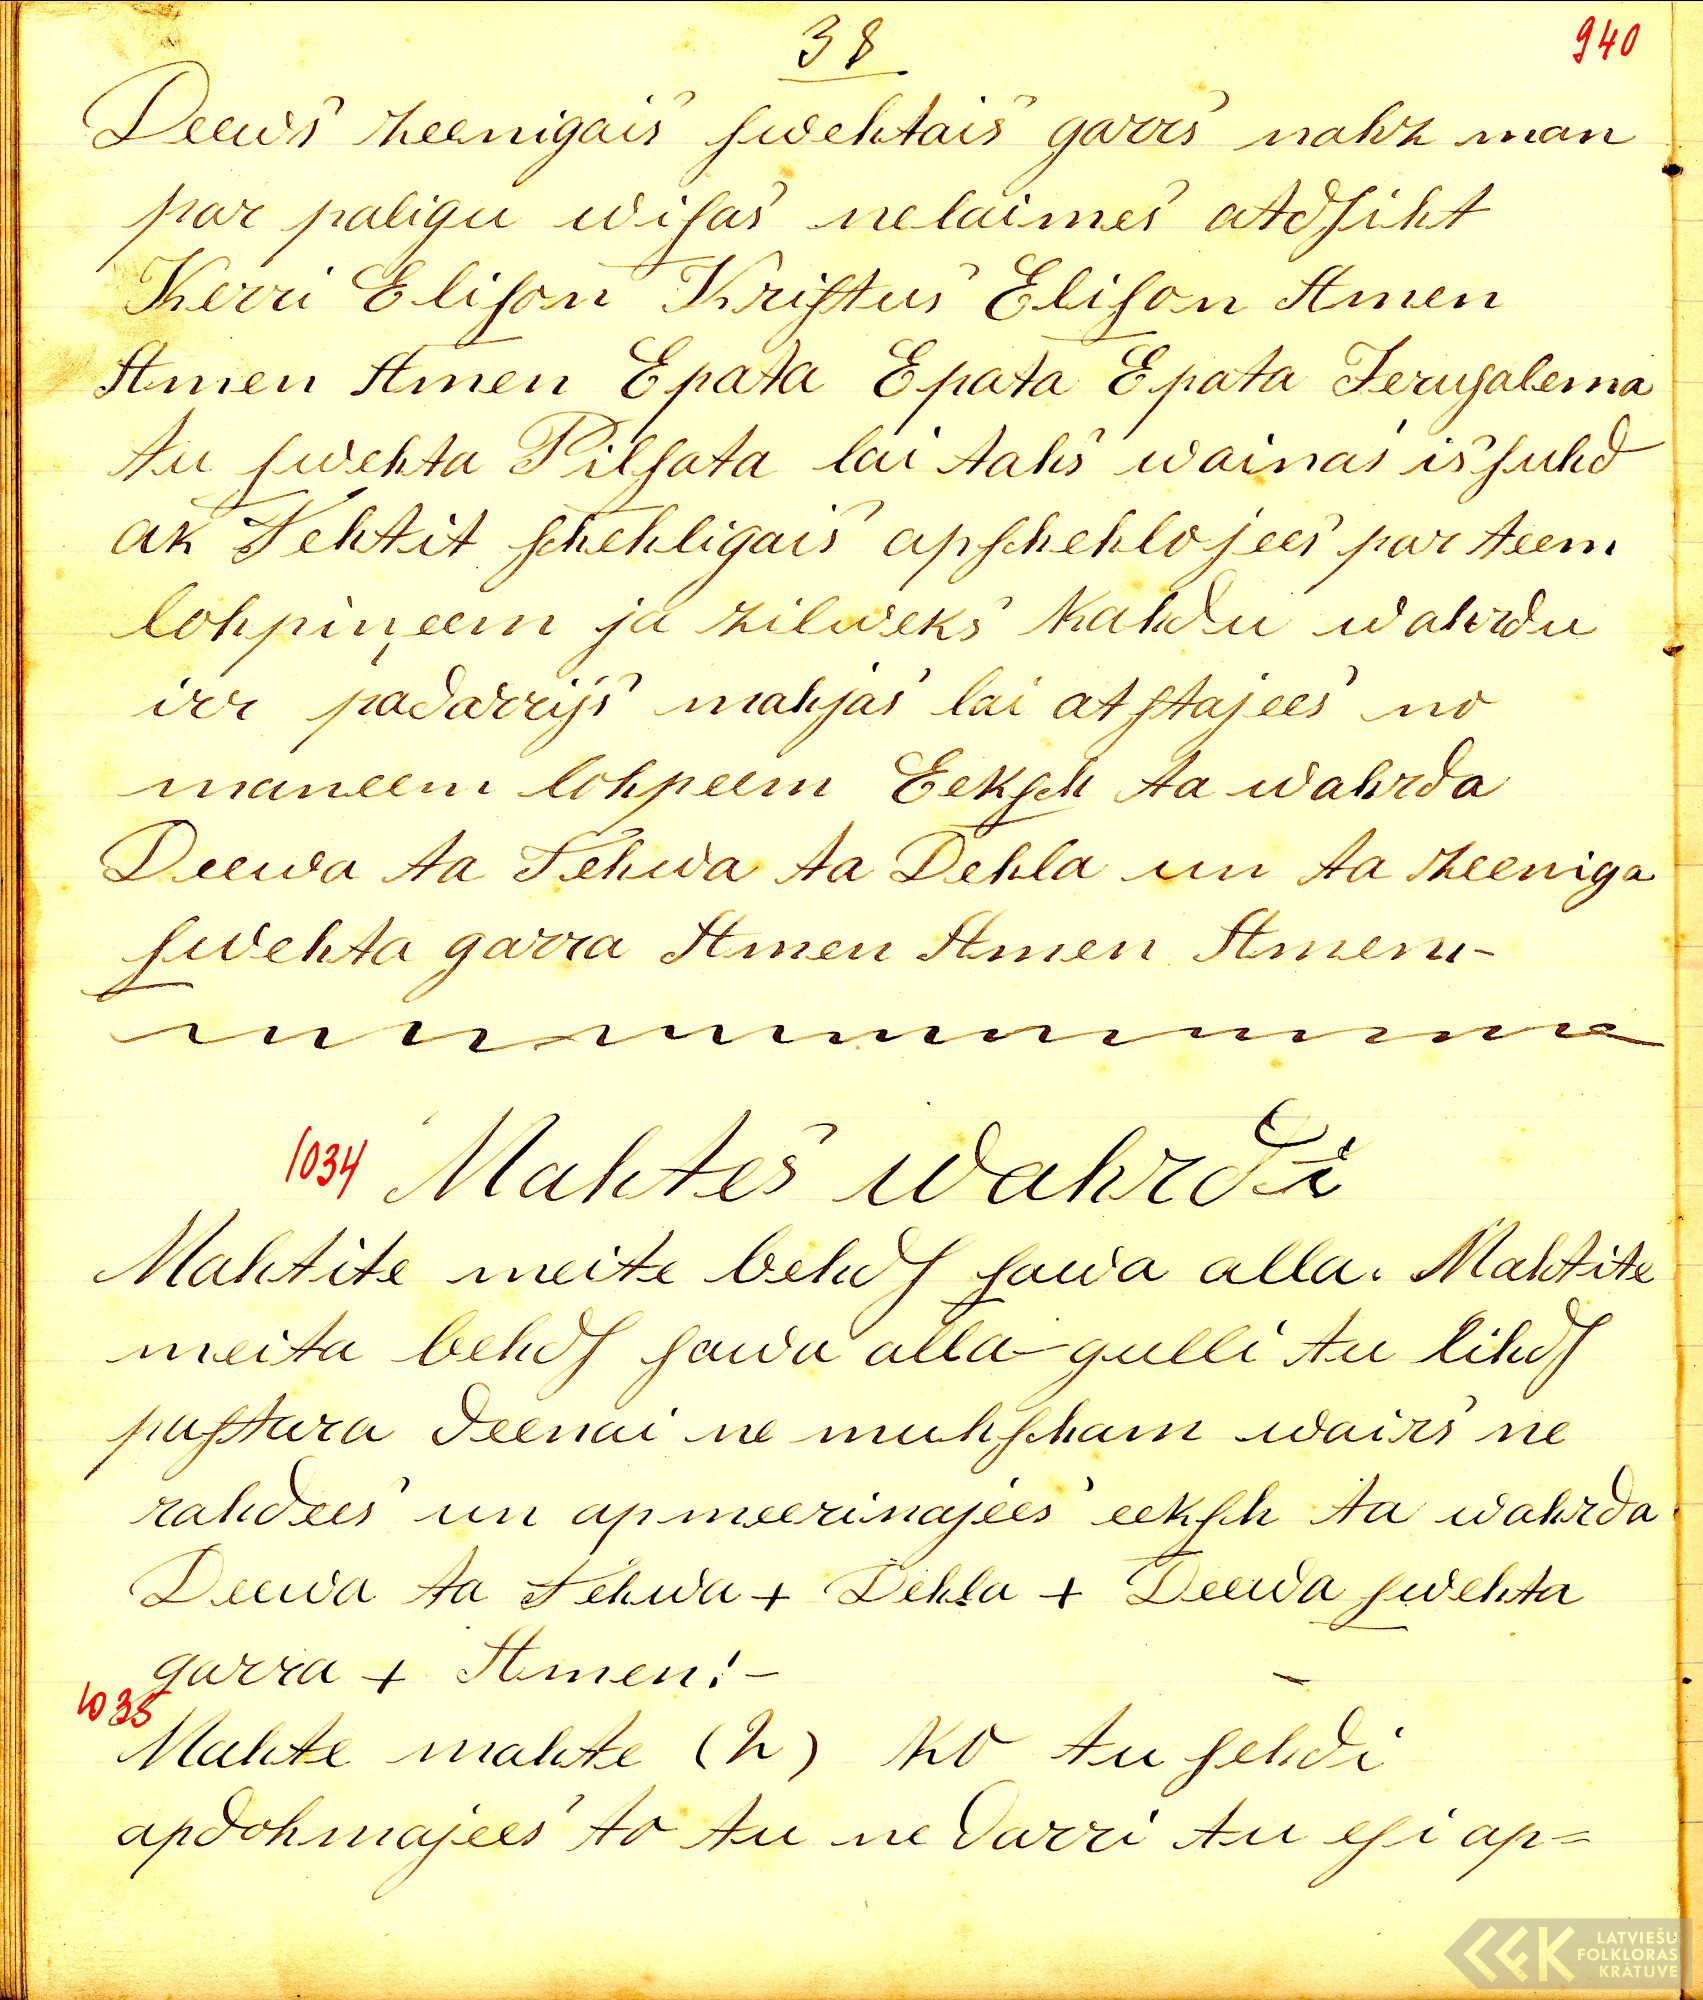 38
940
Deews zeenigais ſwehtais garrs nahz man
par paligu wiſas nelaimes atdſiht
Kerri Eliſon Kriſtus Eliſon Amen
Amen Amen Epata Epata Epata Jeruſalema
tu ſwehta Pilſata lai tahs wainas isſuhd
ak Tehtit ſchehligais apſchehlojees par teem
lohpiņeem ja zilweks kahdu wahrdu
irr padarrijs mahjas lai atſtajees no
maneem lohpeem Eekſch ta wahrda
Deewa ta Tehwa ta Dehla un ta zeeniga
ſwehta garra Amen Amen Amen-
1034 Mahtes wahrdi
Mahtite meite behdſ ſawa alla. Mahtite
meita behdſ ſawa alla-gulli tu lihdſ
paſtara deenai ne muhſcham wairs ne
rahdees un apmeerinajees eekſch ta wahrda
Deewa ta Tehwa + Dehla + Deewa ſwehta
garra + Amen!- -
1035
Mahte mahte (2) ko tu ſehdi
apdohmajees to tu ne darri tu eſi ap=
LATVIEŠU
FOLKLORAS
KRĀTUVE